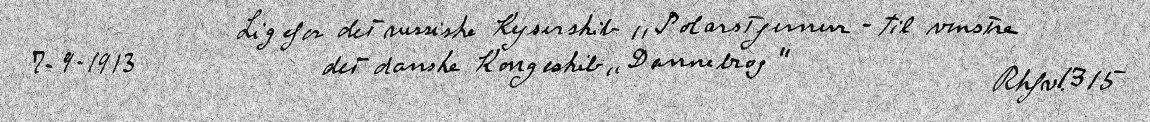 Ligefor det russiske Kejserskib „Polarstjernen - til venstre
7-9-1913 det danske Kongeskib „Dannebrog"
1315